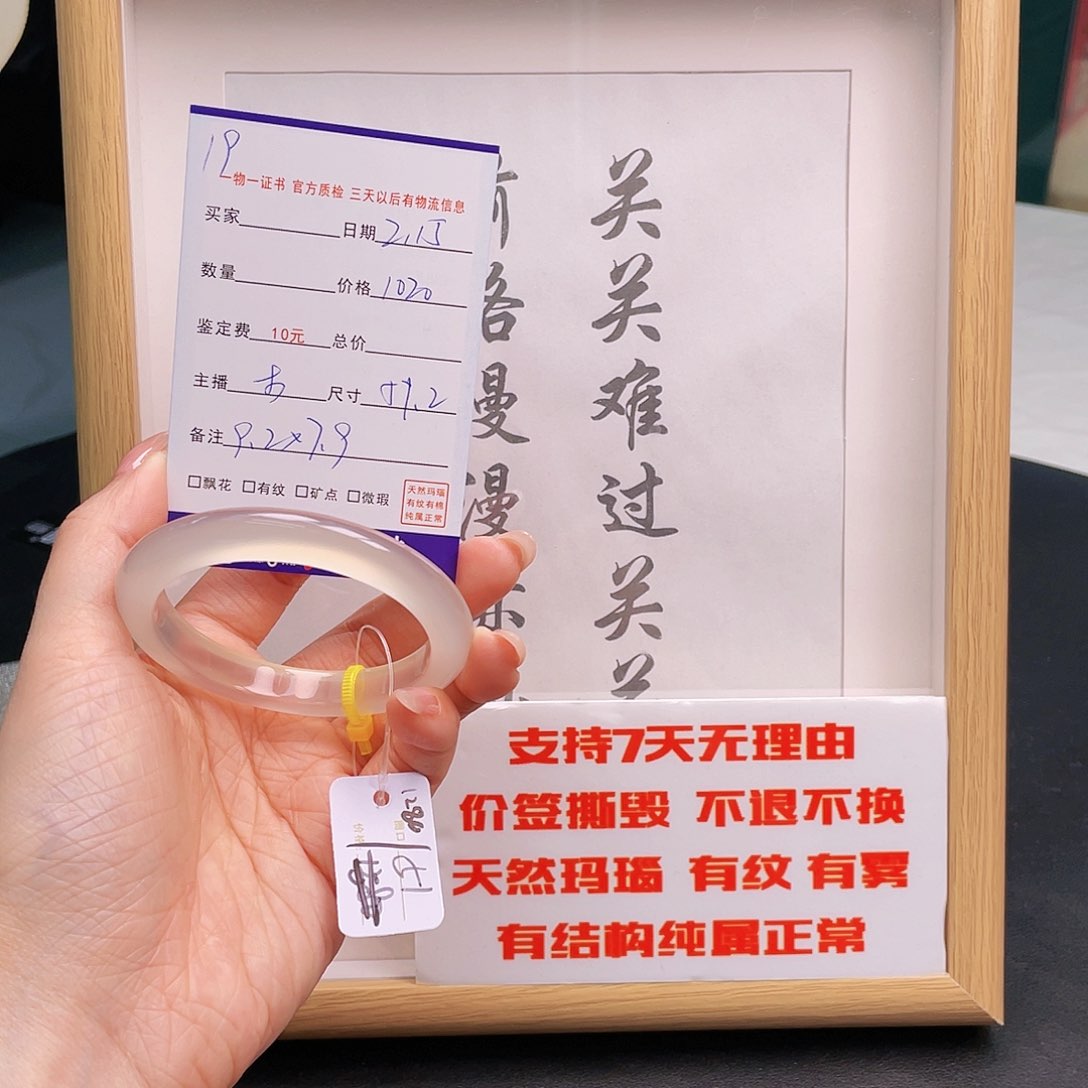 19
物一证书 官方质检 三天以后有物流信息
买家 日期 2.15
数量 价格 1020
鉴定费 10元 总价
主播 尺寸
备注 9.2×7.9
□飘花 □有纹 □矿点 □微瑕
天然玛瑙
有纹有棉
纯属正常
关关难过关关
路漫漫
支持7天无理由
价签撕毁 不退不换
天然玛瑙 有纹 有雾
有结构纯属正常